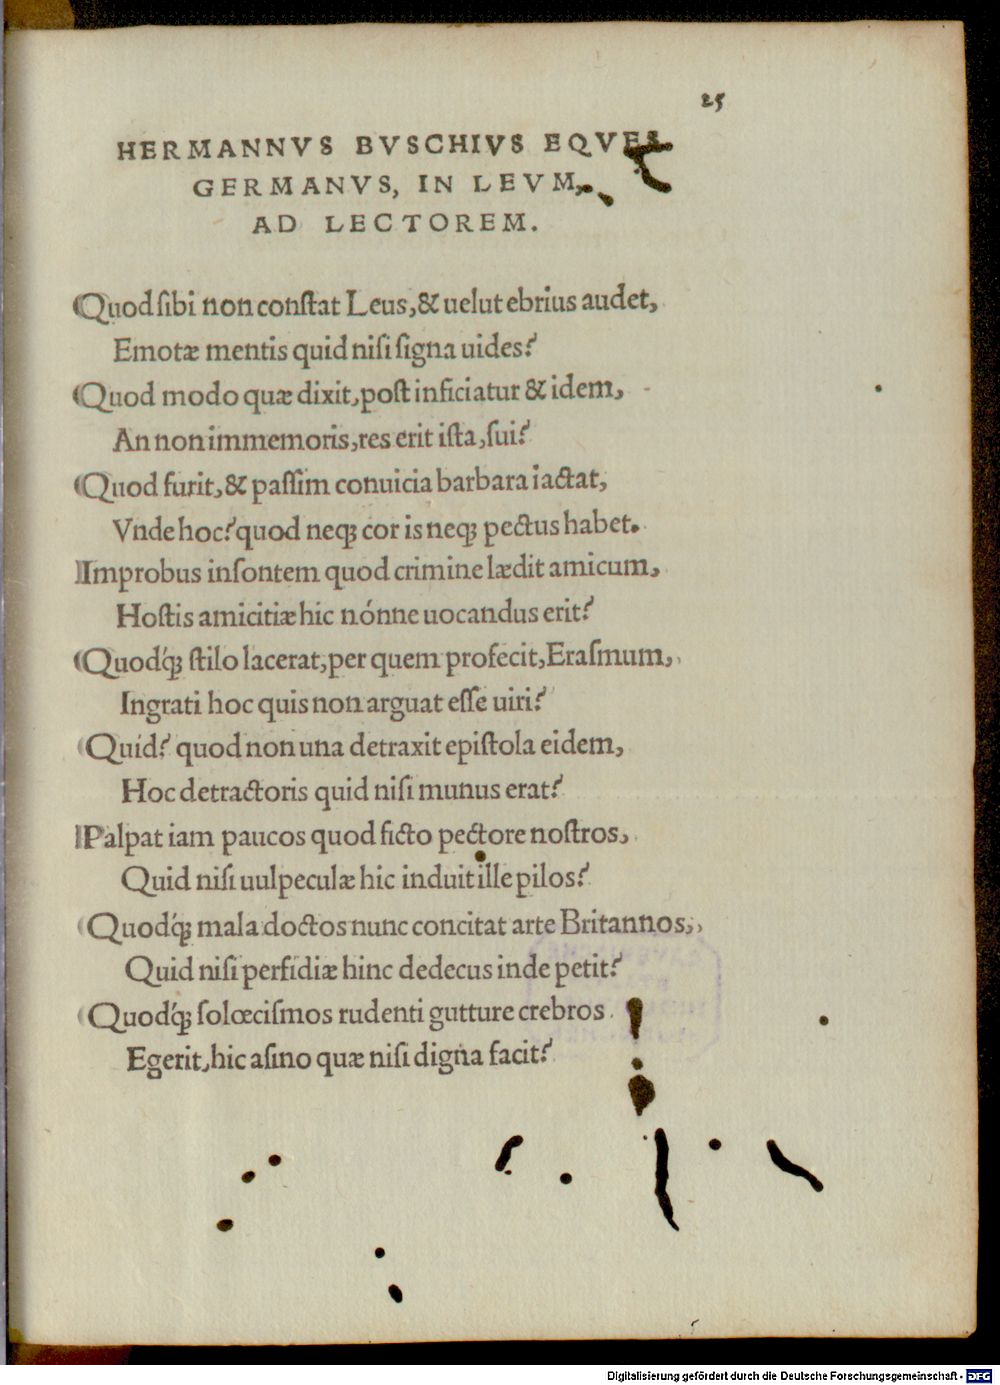 25
HERMANNVS BVSCHIVS EQVES
GERMANVS, IN LEVM,
AD LECTOREM.
Quod ſibi non conſtat Leus, & uelut ebrius audet,
Emotæ mentis quid niſi ſigna uides?
Quod modo quæ dixit, poſt inficiatur & idem,
An non immemoris, res erit iſta, ſui?
Quod furit, & paſſim conuicia barbara iactat,
Vnde hoc? quod neqꝫ cor is neqꝫ pectus habet.
Improbus inſontem quod crimine lædit amicum,
Hoſtis amicitiæ hic nónne uocandus erit?
Quodq́ꝫ ſtilo lacerat, per quem profecit, Eraſmum,
Ingrati hoc quis non arguat eſſe uiri?
Quid? quod non una detraxit epiſtola eidem,
Hoc detractoris quid niſi munus erat?
Palpat iam paucos quod ficto pectore noſtros,
Quid niſi uulpeculæ hic induit ille pilos?
Quodq́ꝫ mala doctos nunc concitat arte Britannos,
Quid niſi perfidiæ hinc dedecus inde petit?
Quodq́ꝫ ſolœciſmos rudenti gutture crebros
Egerit, hic aſino quæ niſi digna facit?
Digitalisierung gefördert durch die Deutsche Forschungsgemeinschaft - DFG